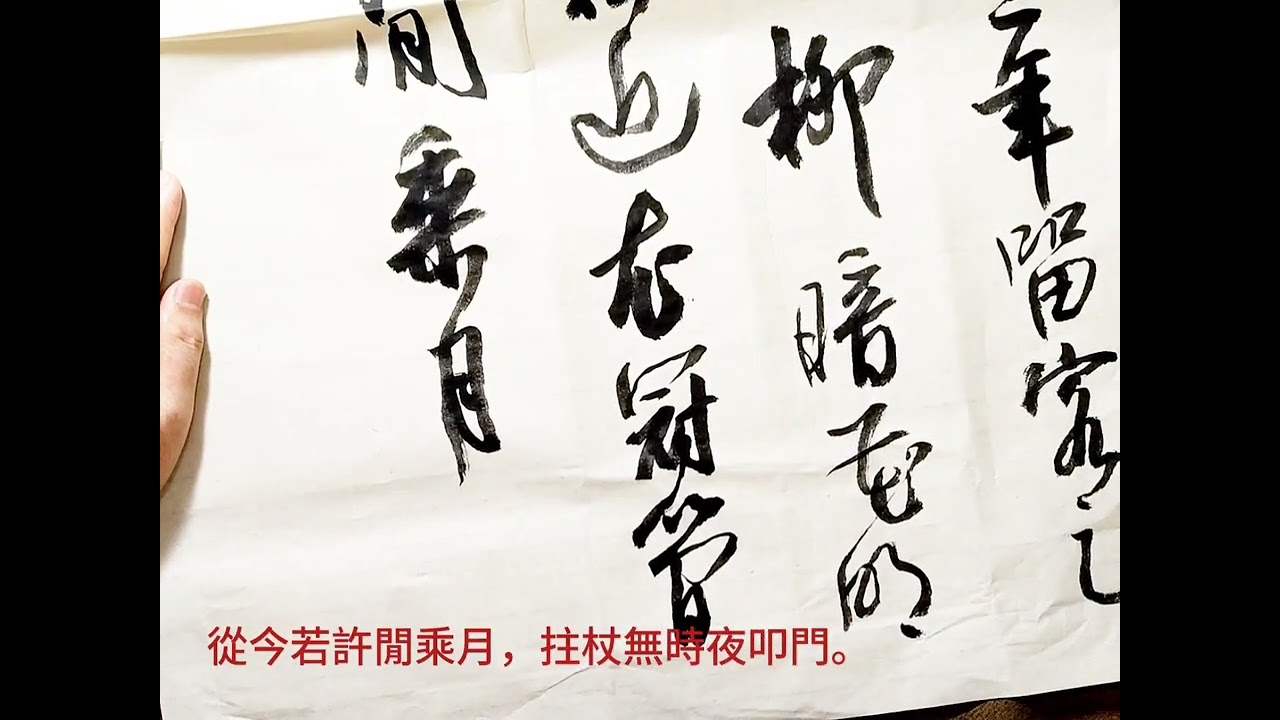 年留客足
柳暗花明
近衣冠簡
閒乘月
從今若許閒乘月，拄杖無時夜叩門。